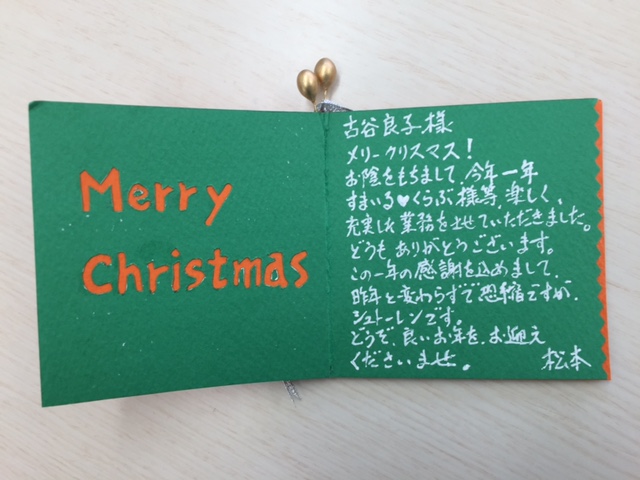 Merry
Christmas
古谷良子様
メリークリスマス！
お陰をもちまして、今年一年
すまいる♥くらぶ様等、楽しく、
充実した業務をさせていただきました。
どうもありがとうございます。
この一年の感謝を込めまして、
昨年と変わらずで恐縮ですが、
シュトーレンです。
どうぞ、良いお年を、お迎え
くださいませ。
松本